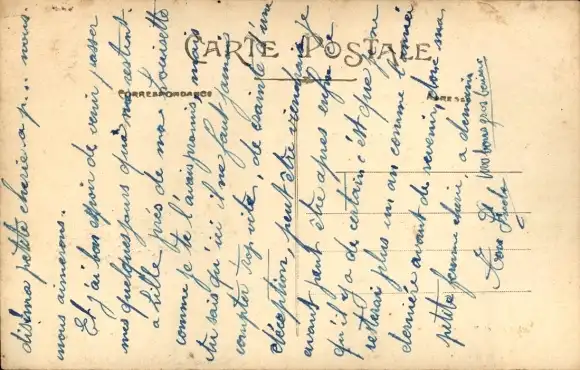 CARTE POSTALE
CORRESPONDANCE
ADRESSE
dis ma petite cherie a p... nous
nous aimerons.
Et j'ai bon espoir de venir passer
mes quelques jours qui me restent
a Lille près de ma Louisette
comme je te l'avais promis, mais
tu sais qu'ici il ne faut jamais
compter trop vite, de crainte d'une
déception, peut être viendrai je
avant peut être apres enfin ce
qu'il y a de certain c'est que je ne
resterai plus un an comme l'année
dernière avant de revenir, donc ma
petite femme cherie, a demain
1000 bons gros baisers
Ton